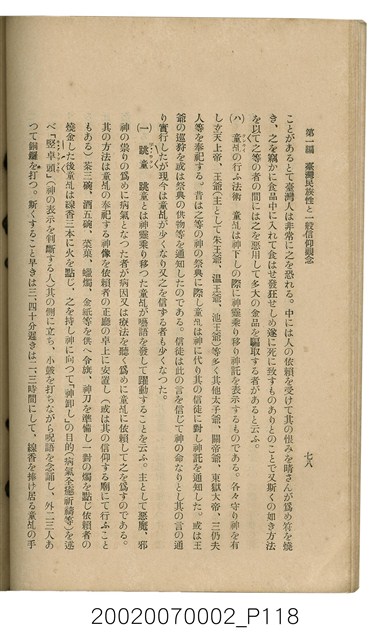 第一編　臺灣民族性と一般信仰觀念　　七八
ことがあるとて臺灣人は非常に之を恐れる。中には人の依頼を受けて其の恨みを晴さんが爲め符を燒
き、之を竊かに食品中に入れて食はせ發狂せしめ遂に死に致すものありとのことで又斯くの如き方法
を以て之等の者の間には之を惡用して多大の金品を騙取する者があると云ふ。
(ハ)　童乩の行ふ法術　童乩は神下しの際に神靈乘り移り神託を表示するものである。各々守り神を有
し玄天上帝、王爺(主として朱王爺、温王爺、池王爺)等多く其他太子爺、關帝爺、東嶽大帝、三仍夫
人等を奉祀する。昔は之等の神の祭典に際し童乩は神に代り其の信徒に對し神託を通知した。或は王
爺の巡狩を或は祭典の供物等を通知したのである。信徒は此の言を信じて神の命なりとし其の言の通
り實行したが現今は童乩が少くなり又之を信ずる者も少くなつた。
(一)　跳童　跳童とは神靈乘り移つた童乩が囈語を發して躍動することを云ふ。主として惡魔、邪
神の祟りの爲めに病氣となつた者が病因又は療法を聽く爲めに童乩に依頼して之を爲すのである。
其の方法は童乩の奉祀する神像を依頼者の正廳の卓上に安置し(或は其の信仰する廟にて行ふこと
もある)茶三碗、酒五碗、菜菓、蠟燭、金紙等を供へ令旗、神刀を準備し一對の燭を點じ依頼者の
燒金した後童乩は線香三本に火を點じ、之を持し神に向つて「神卸し」の目的(病氣全癒祈禱等)を述
べ「竪卓頭」(神の表示を判斷する人)其の側に立ち、小鼓を打ちながら呪語を念誦し、外二三人あ
つて銅鑼を打つ。斯くすること早きは三、四十分遲きは二、三時間にして、線香を捧げ居る童乩の手
20020070002_P118